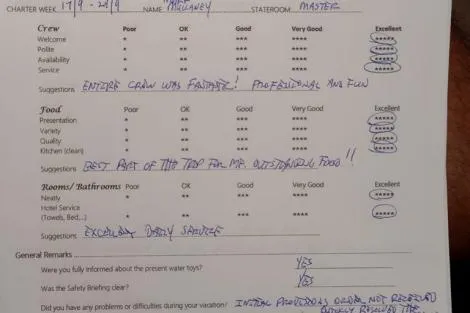 CHARTER WEEK 17/9 - 24/9 NAME MULLANEY STATEROOM: MASTER
Crew Poor OK Good Very Good Excellent
Welcome * ** *** **** *****
Polite * ** *** **** *****
Availability * ** *** **** *****
Service * ** *** **** *****
Suggestions ENTIRE CREW WAS FANTASTIC! PROFESSIONAL AND FUN
Food Poor OK Good Very Good Excellent
Presentation * ** *** **** *****
Variety * ** *** **** *****
Quality * ** *** **** *****
Kitchen (clean) * ** *** **** *****
Suggestions BEST PART OF THE TRIP FOR ME. OUTSTANDING FOOD!!
Rooms/Bathrooms Poor OK Good Very Good Excellent
Neatly * ** *** **** *****
Hotel Service
(Towels, Bed,...) * ** *** **** *****
Suggestions EXCELLENT DAILY SERVICE
General Remarks
Were you fully informed about the present water toys? YES
Was the Safety Briefing clear? YES
Did you have any problems or difficulties during your vacation? INITIAL PROVISIONS ORDER NOT RECEIVED
RESOLVED THE